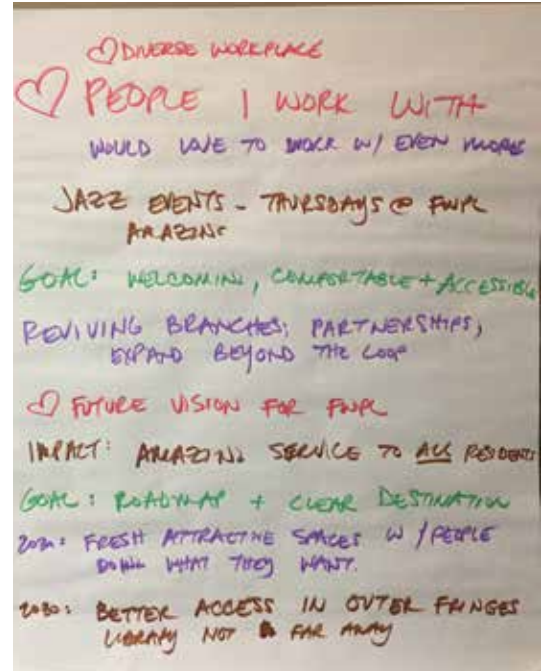 ♡ DIVERSE WORKPLACE
♡ PEOPLE I WORK WITH
WOULD LOVE TO WORK W/ EVEN MORE
JAZZ EVENTS - THURSDAYS @ FWPL
AMAZING
GOAL: WELCOMING, COMFORTABLE + ACCESSIBLE
REVIVING BRANCHES; PARTNERSHIPS,
EXPAND BEYOND THE LOOP
♡ FUTURE VISION FOR FWPL
IMPACT: AMAZING SERVICE TO ALL RESIDENTS
GOAL: ROADMAP + CLEAR DESTINATION
FRESH ATTRACTIVE SPACES W/ PEOPLE
DOING WHAT THEY WANT.
2030: BETTER ACCESS IN OUTER FRINGES
LIBRARY NOT FAR AWAY